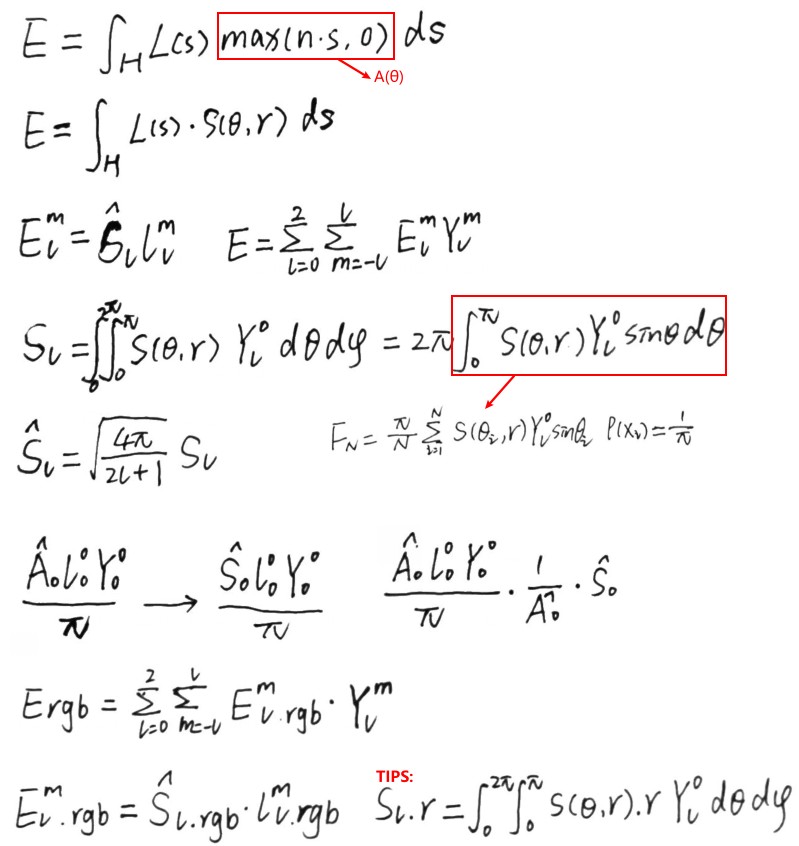 E = ∫_H L(s) max(n·s, 0) ds
A(θ)
E = ∫_H L(s) · S(θ,r) ds
E_l^m = Ŝ_l L_l^m    E = Σ_{l=0}^{2} Σ_{m=-l}^{l} E_l^m Y_l^m
S_l = ∫_0^{2π} ∫_0^π S(θ,r) Y_l^0 dθdφ = 2π ∫_0^π S(θ,r) Y_l^0 sinθ dθ
Ŝ_l = √(4π/(2l+1)) S_l    F_N = π/N Σ_{i=1}^{N} S(θ_i,r) Y_l^0 sinθ_i P(X_i) = 1/π
Â_0 L_0^0 Y_0^0 / π → Ŝ_0 L_0^0 Y_0^0 / π    Â_0 L_0^0 Y_0^0 / π · 1/Â_0 · Ŝ_0
Ergb = Σ_{l=0}^{2} Σ_{m=-l}^{l} E_l^m.rgb · Y_l^m
TIPS:
E_l^m.rgb = Ŝ_l.rgb · L_l^m.rgb    S_l.r = ∫_0^{2π} ∫_0^π S(θ,r).r Y_l^0 dθdφ